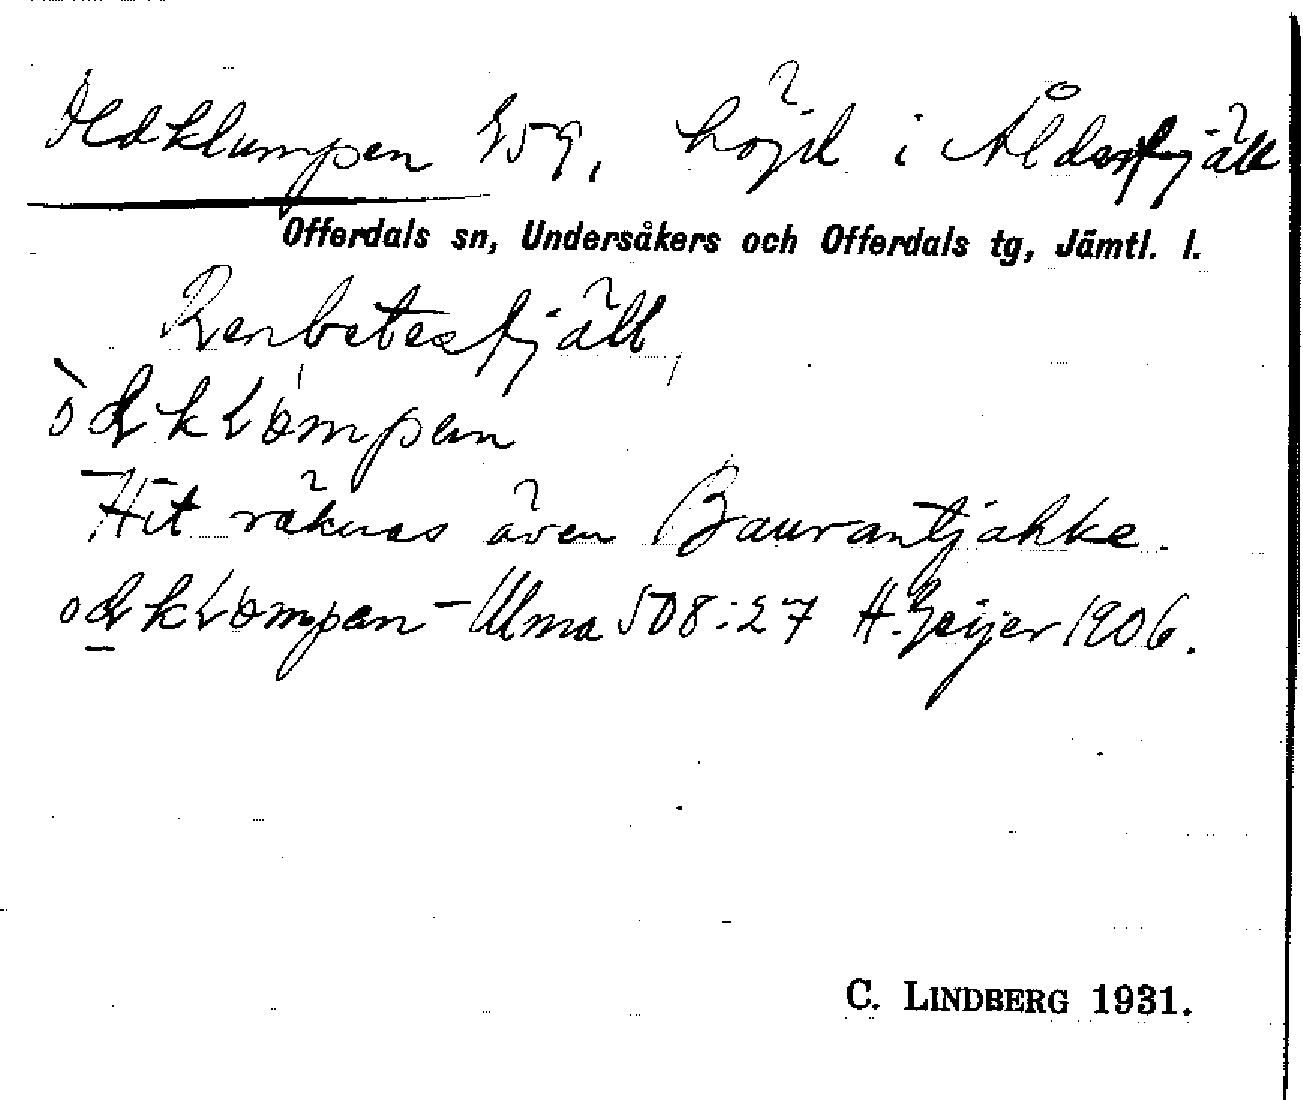 Oldklumpen 259, höjd i Åldersfjäll
Offerdals sn, Undersåkers och Offerdals tg, Jämtl. l.
Renbetesfjäll,
Hit räknas även Baurantjahke.
– Ulma 508:27 H. Geijer 1906.
C. LINDBERG 1931.